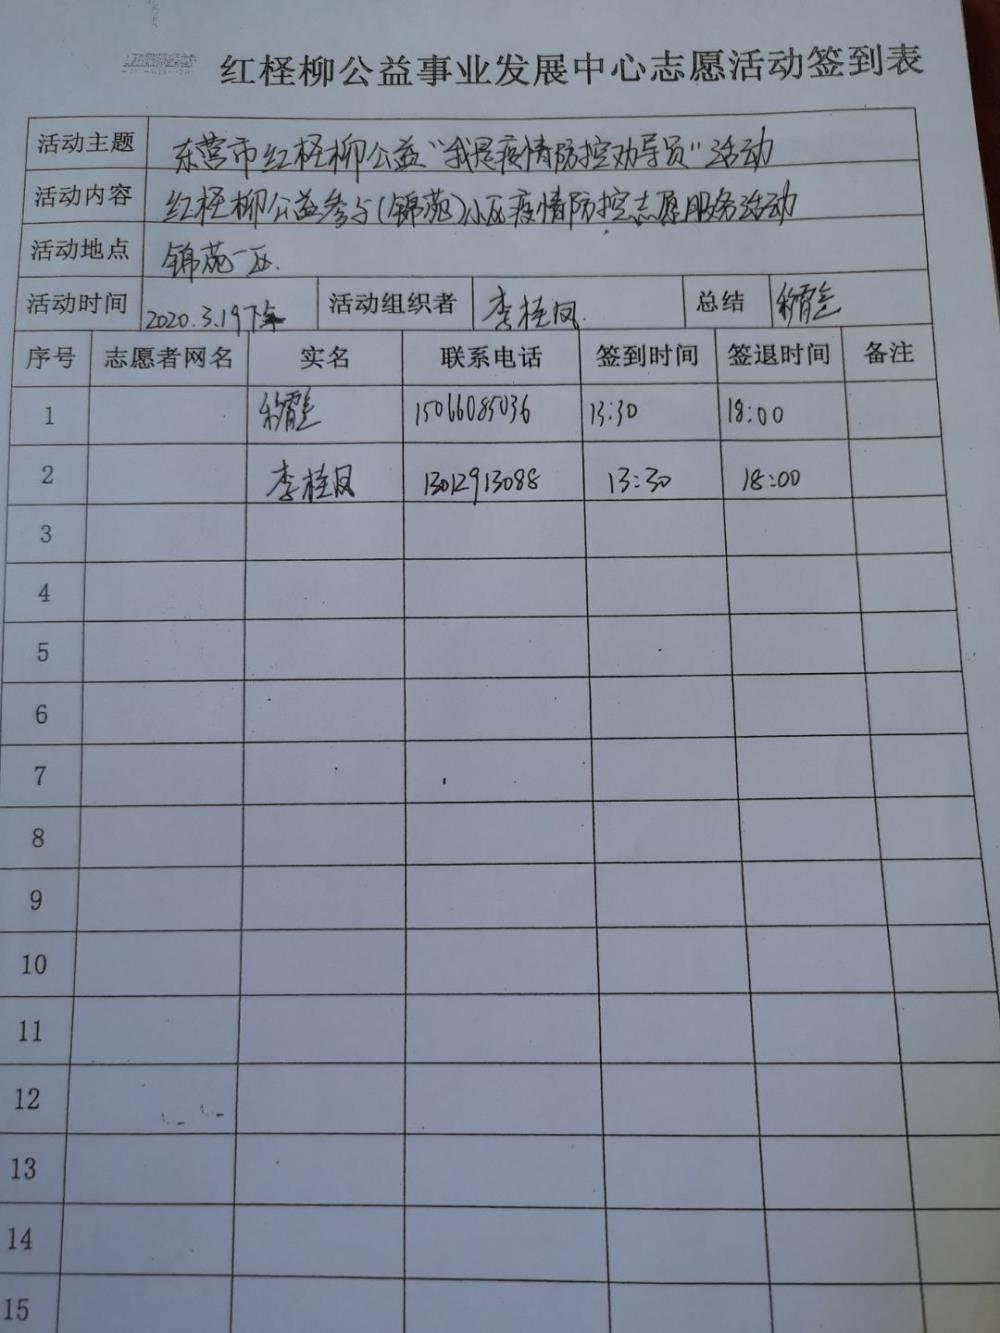 红柽柳公益事业发展中心志愿活动签到表
活动主题 东营市红柽柳公益"我是疫情防控劝导员"活动
活动内容 红柽柳公益参与(锦苑)小区疫情防控志愿服务活动
活动地点 锦苑一区.
活动时间 2020.3.19下午 活动组织者 李桂凤. 总结
序号 志愿者网名 实名 联系电话 签到时间 签退时间 备注
1 15066085036 13:30 18:00
2 李桂凤 13012913088 13:30 18:00
3
4
5
6
7
8
9
10
11
12
13
14
15